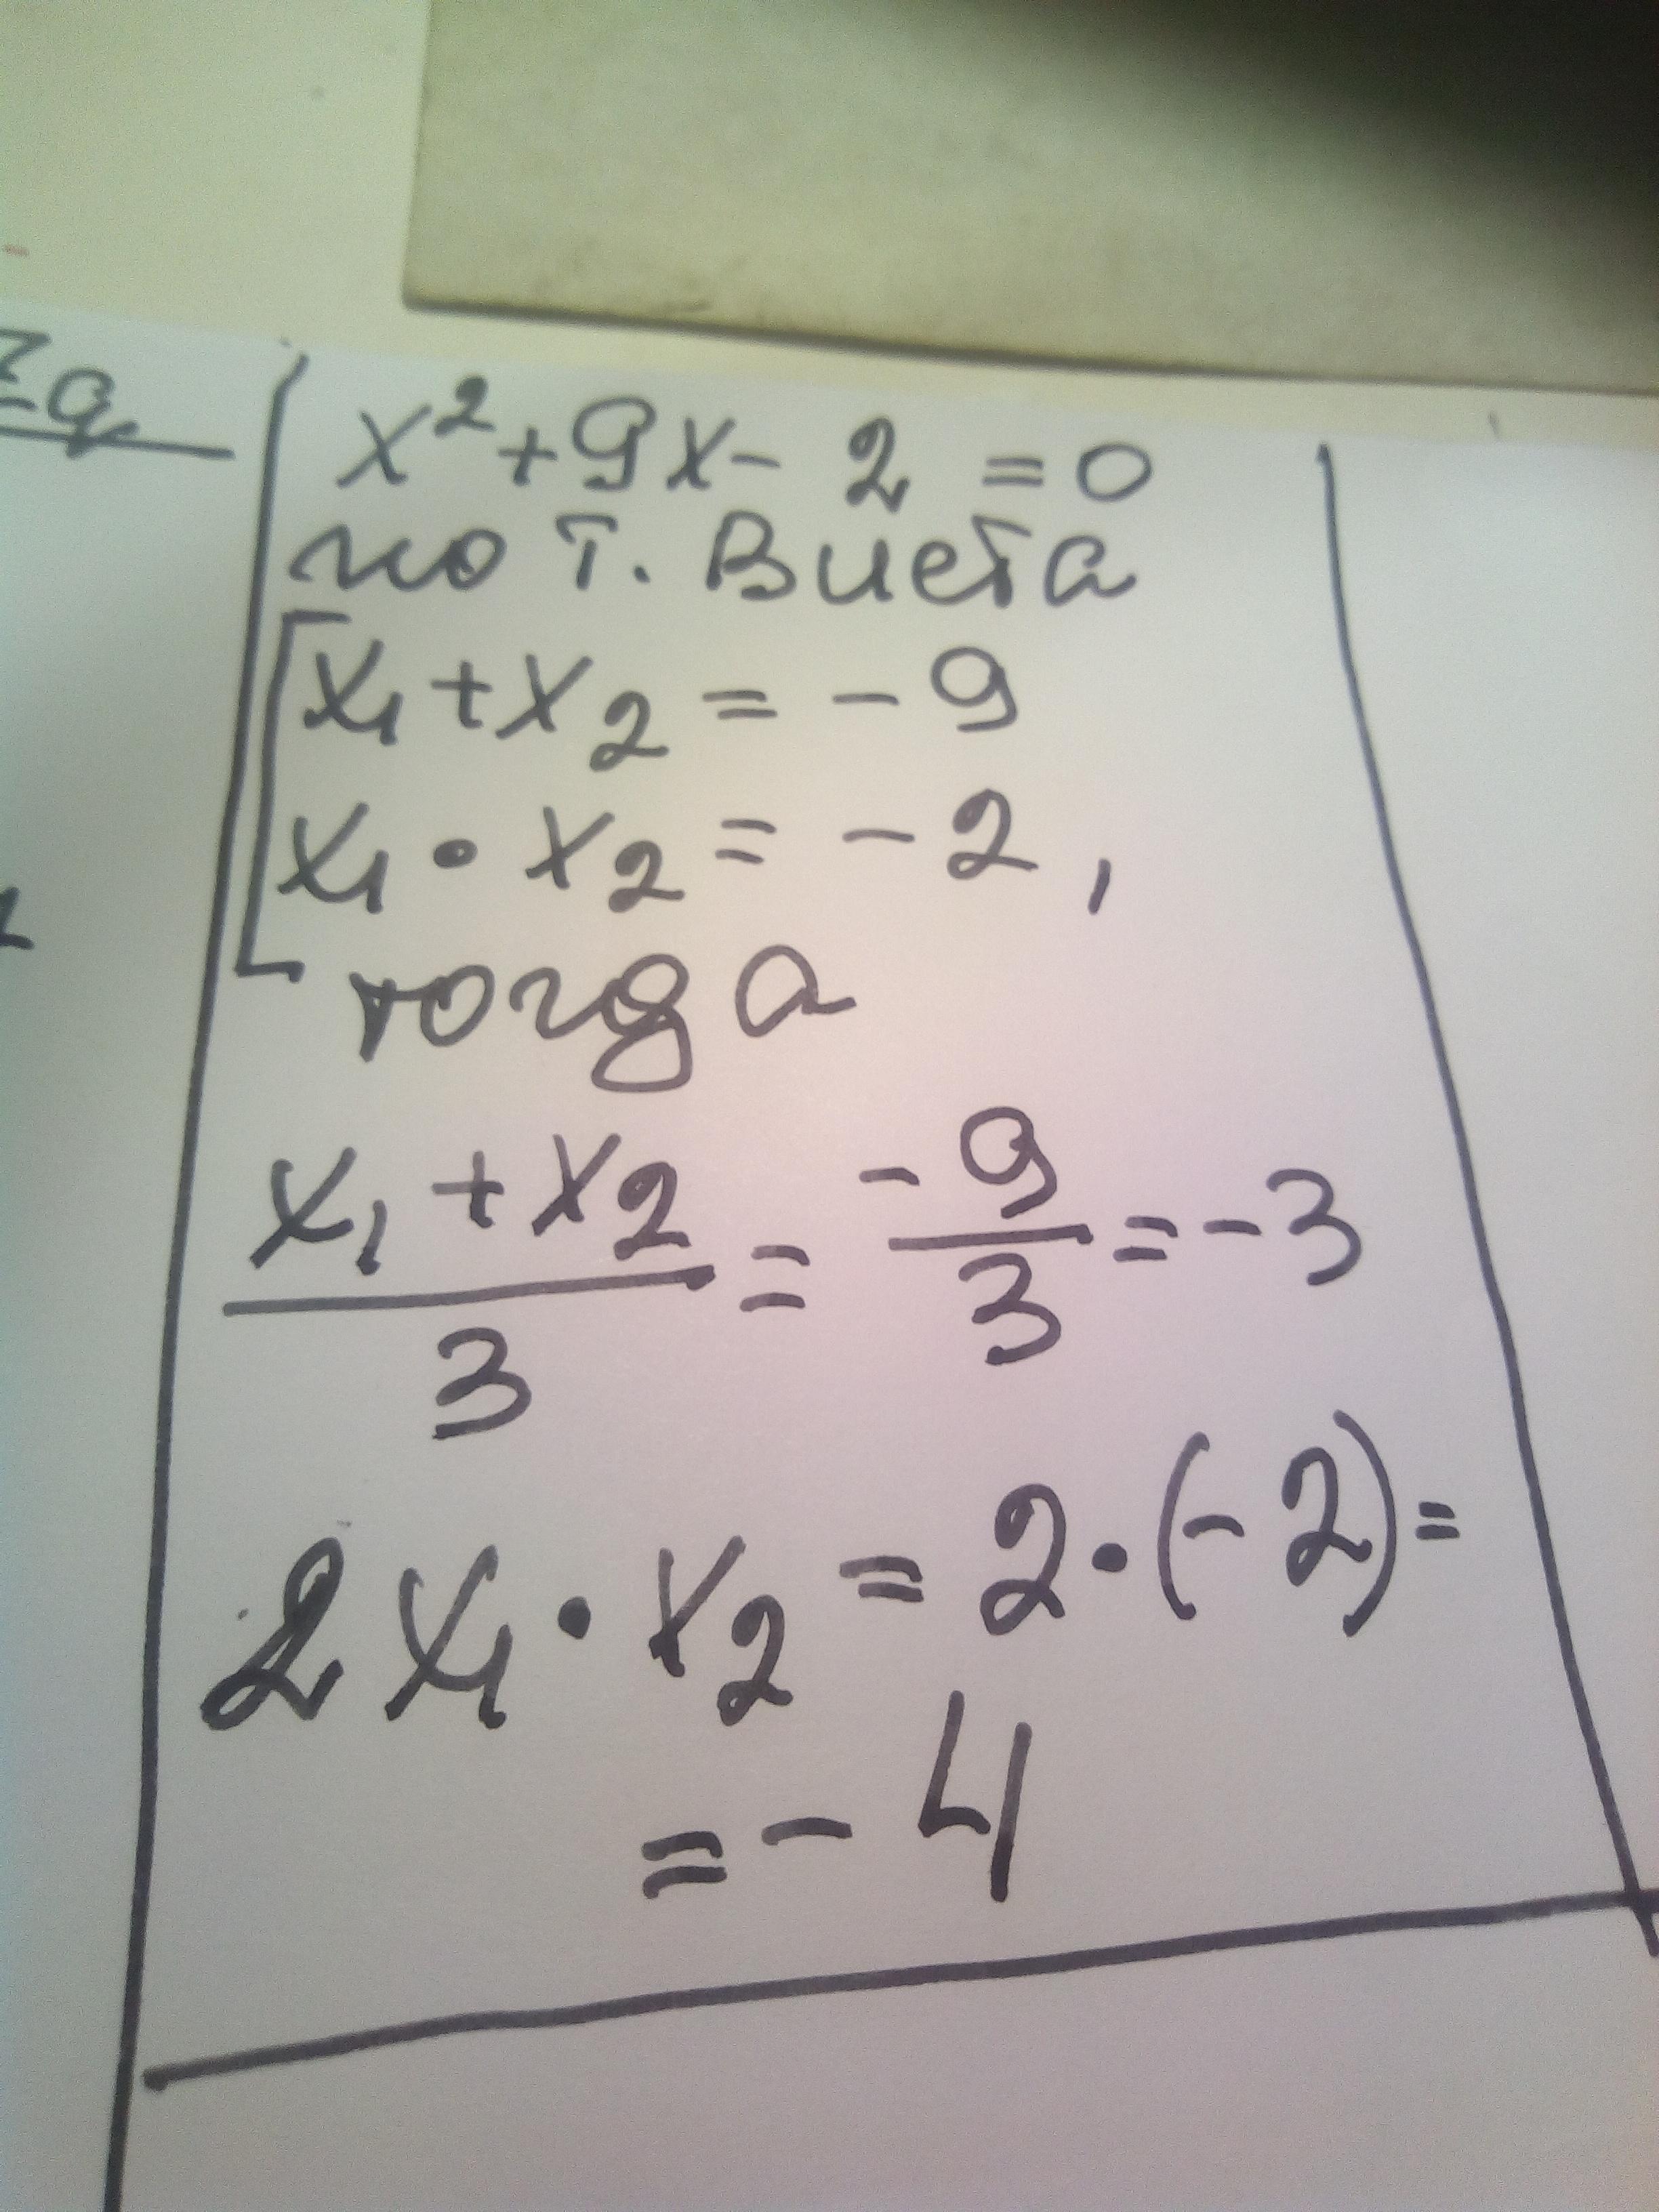 x² + 9x - 2 = 0
по т. Виета
x₁ + x₂ = - 9
x₁ · x₂ = - 2 ,
тогда
(x₁ + x₂)/3 = -9/3 = -3
2x₁ · x₂ = 2 · (-2) =
= - 4